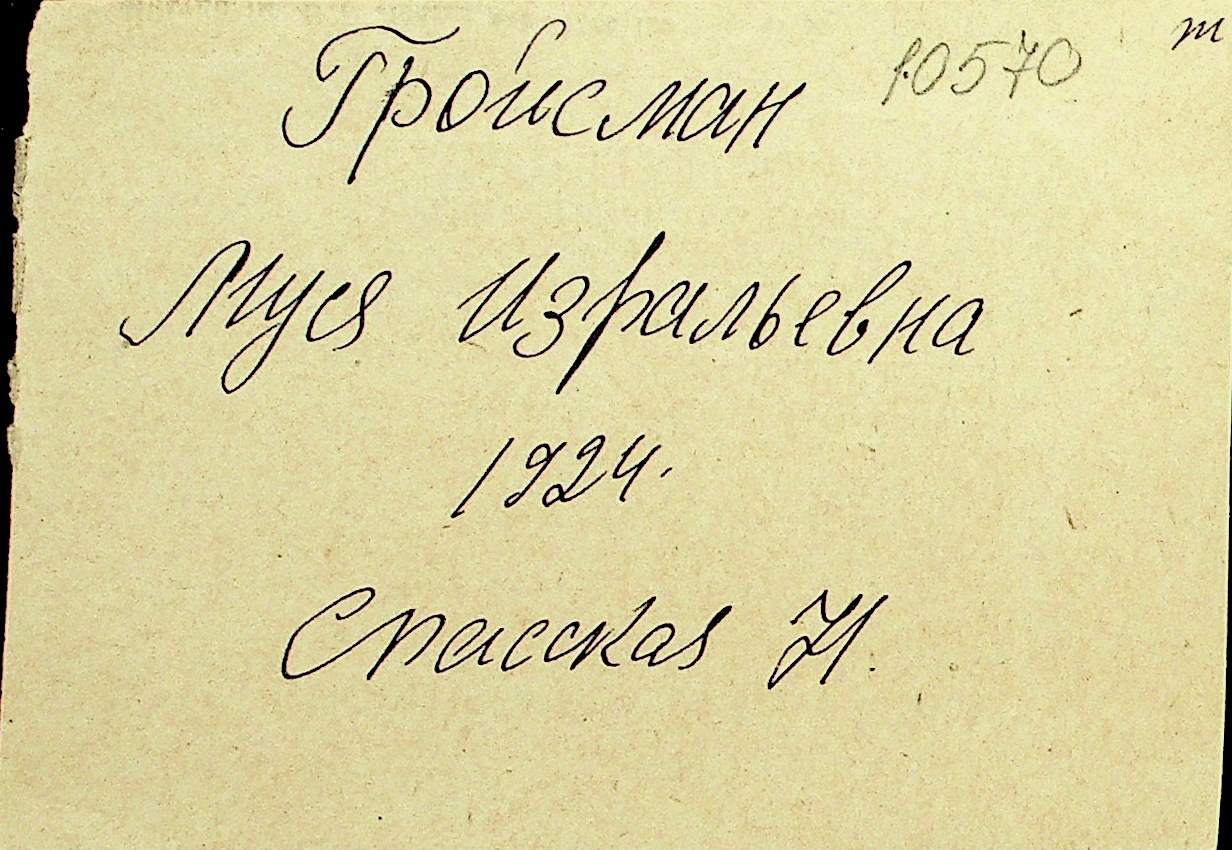 Гройсман 10570 т
Муся Изральевна
1924.
Спасская Н.